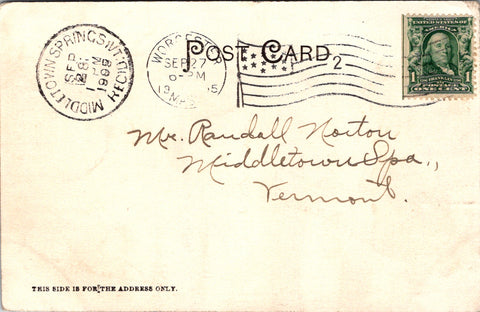 MIDDLETOWN SPRINGS, VT. REC'D.
SEP
28
1 PM
POST CARD
SEP 27
MASS
2
UNITED STATES OF AMERICA
1 1
POSTAGE
ONE CENT
Mr. Randall Norton
Middletown Spa.,
Vermont.
THIS SIDE IS FOR THE ADDRESS ONLY.